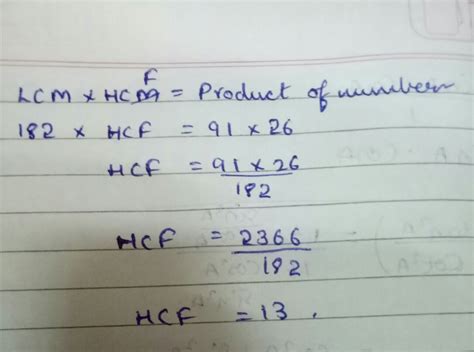 LCM × HCF = Product of numbers
182 × HCF = 91 × 26
HCF = 91 × 26
182
HCF = 2366
182
HCF = 13.